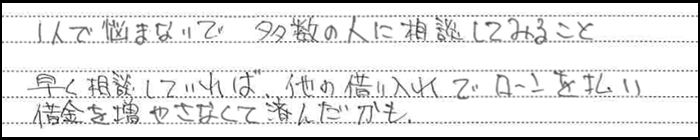 1人で悩まないで 多数の人に相談してみること
早く相談していれば、他の借り入れでローンを払い
借金を増やさなくて済んだかも.